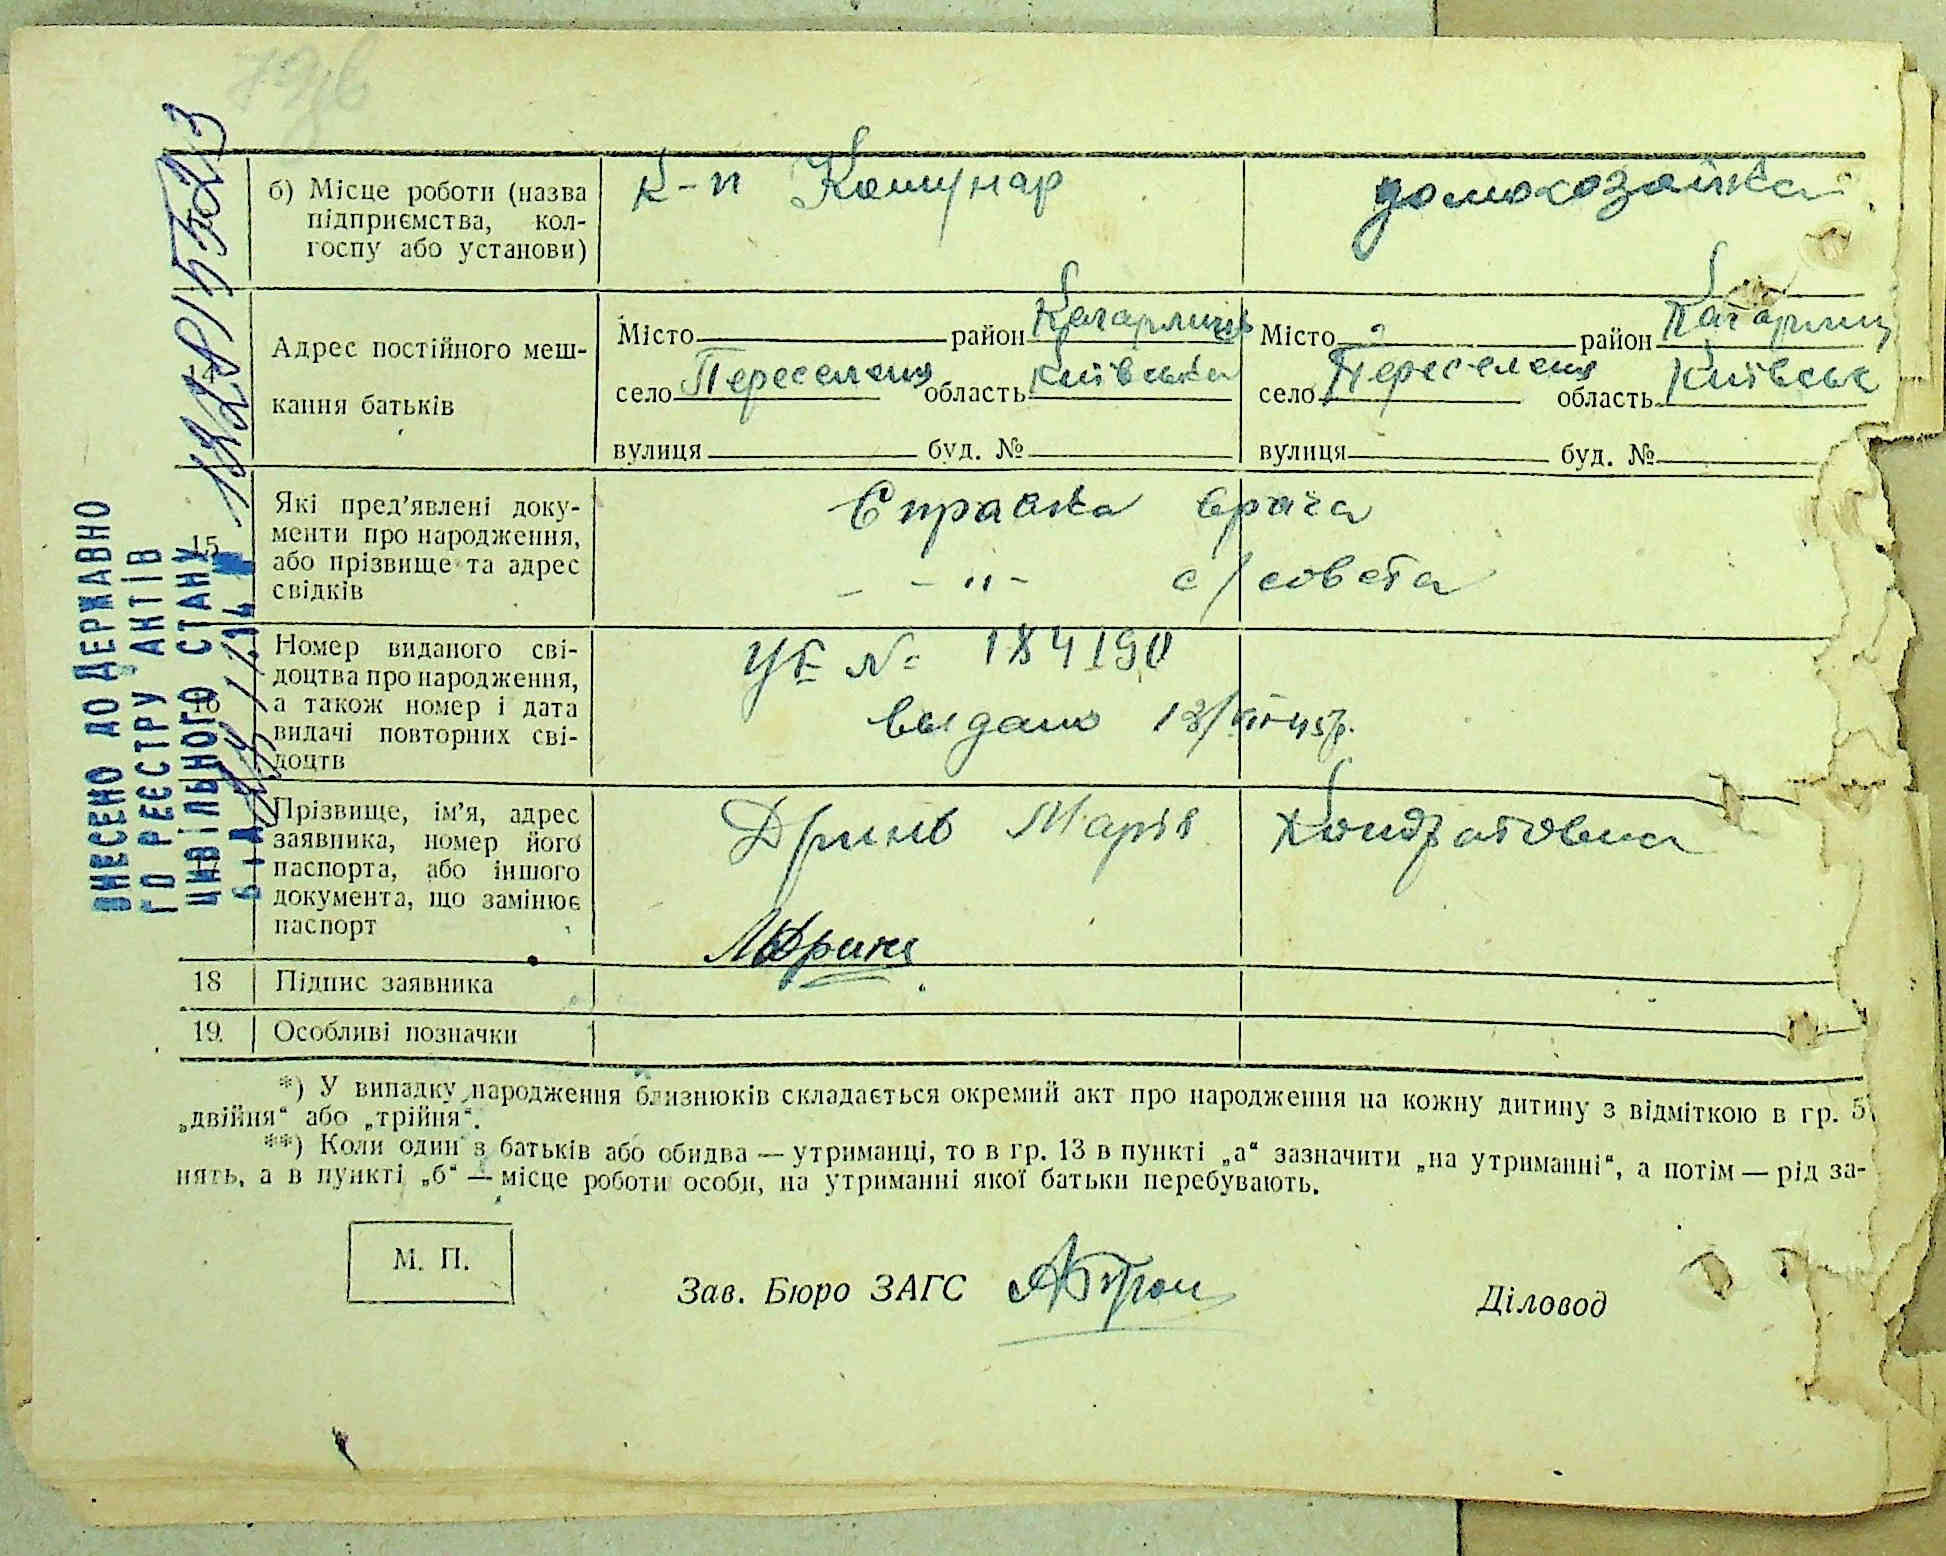 б) Місце роботи (назва
підприємства, кол-
госпу або установи)
к-п Комунар
домохозайка
Адрес постійного меш-
кання батьків
Місто район Кагарлицьк
село Переселення область Київська
вулиця буд. №
Місто район Кагарлиц
село Переселення область Київськ
вулиця буд. №
15
Які пред'явлені доку-
менти про народження,
або прізвище та адрес
свідків
Справка врача
- „ - с/совета
16
Номер виданого сві-
доцтва про народження,
а також номер і дата
видачі повторних сві-
доцтв
УЕ № 184190
выдано
17
Прізвище, ім'я, адрес
заявника, номер його
паспорта, або іншого
документа, що замінює
паспорт
Дринь Марія Кондратовна
18 Підпис заявника
19. Особливі позначки
*) У випадку народження близнюків складається окремий акт про народження на кожну дитину з відміткою в гр. 5
„двійня“ або „трійня“.
**) Коли один з батьків або обидва — утриманці, то в гр. 13 в пункті „а“ зазначити „на утриманні“, а потім — рід за-
нять, а в пункті „б“ — місце роботи особи, на утриманні якої батьки перебувають.
М. П.
Зав. Бюро ЗАГС
Діловод
ВНЕСЕНО ДО ДЕРЖАВНО
ГО РЕЄСТРУ АКТІВ
ЦИВІЛЬНОГО СТАНУ